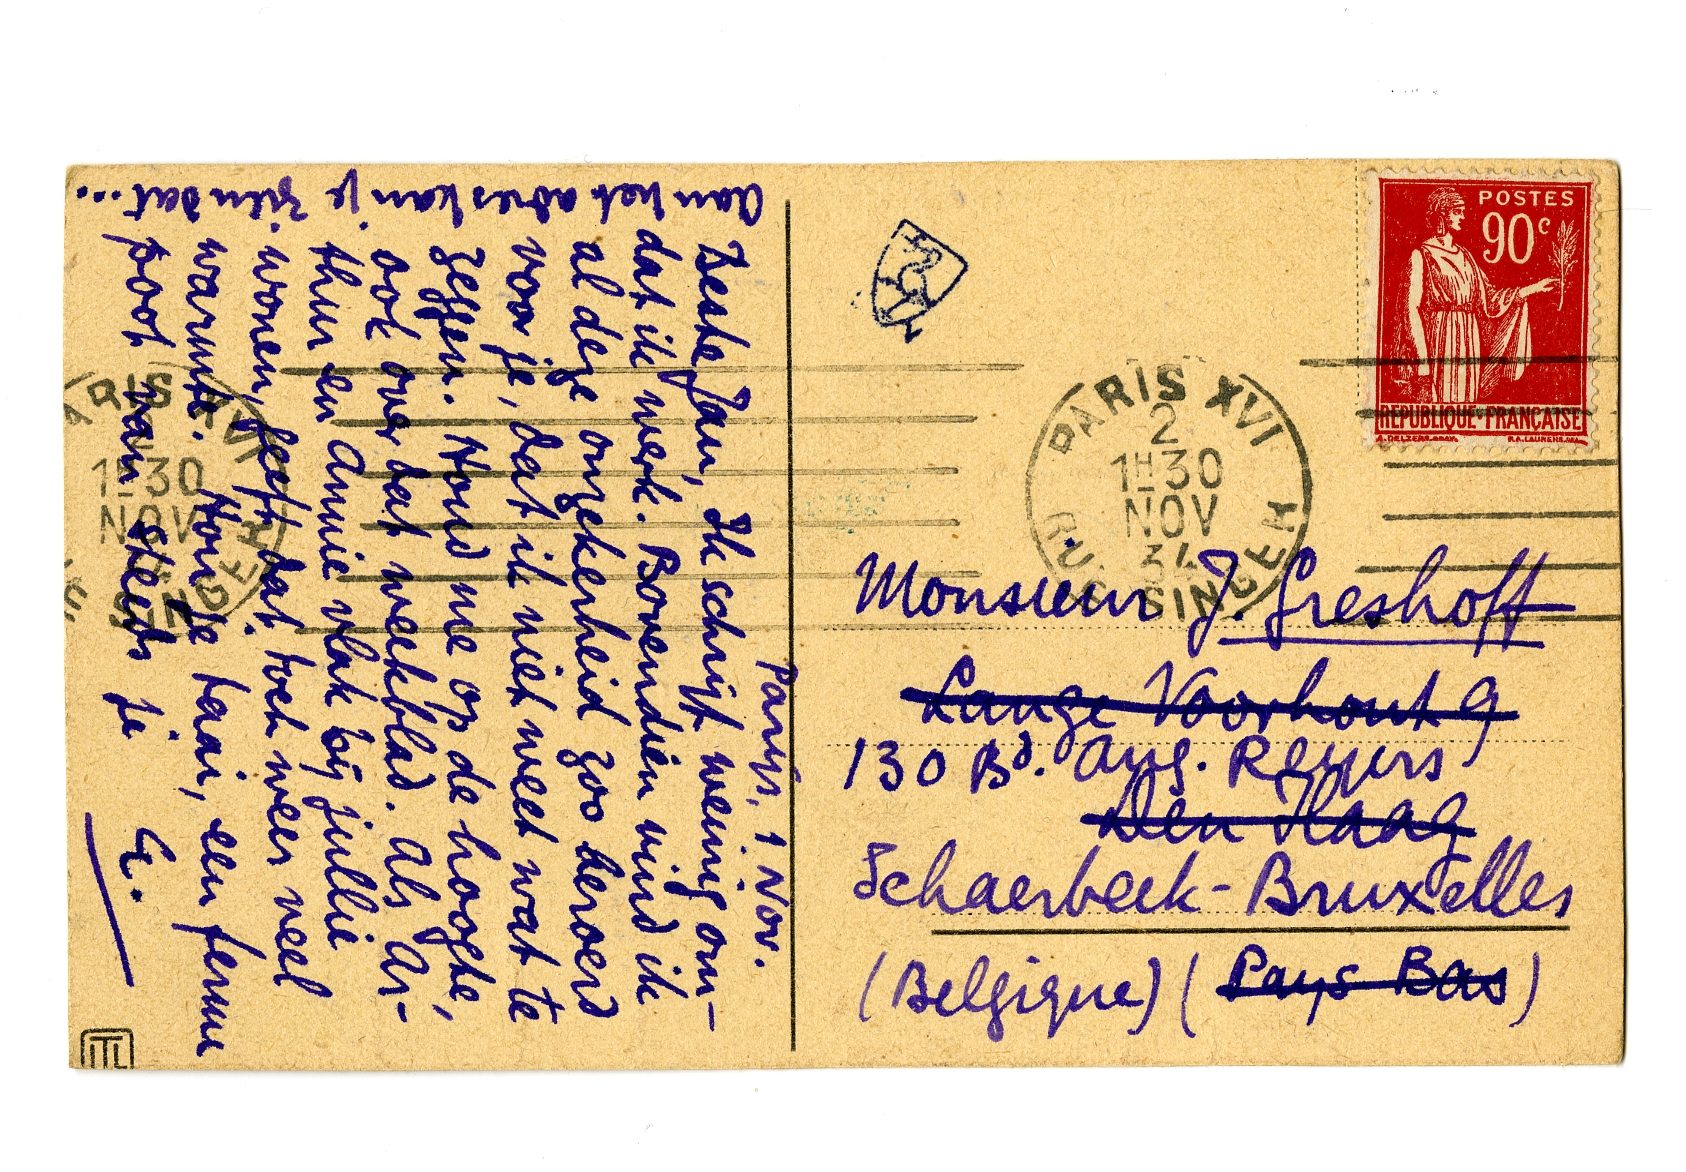 Parijs, 1 Nov.
Beste Jan, Ik schrijf weinig om-
dat ik werk. Bovendien vind ik
al deze onzekerheid zoo beroerd
voor je, dat ik niet weet wat te
zeggen. Houd me op de hoogte,
ook over dat weekblad. Als Ar-
thur en Annie vlak bij jullie
wonen, geeft dat toch weer veel
warmte. Hou je taai, een ferme
poot van steeds je
E.
Aan het adres kan je zien dat...
POSTES
90c
REPUBLIQUE·FRANÇAISE
PARIS XVI
2
1H30
NOV
34
RUE SINGER
PARIS XVI
1H30
NOV
SINGER
Monsieur J. Greshoff
Lange Voorhout 9
130 Bd. Aug. Reyers
Den Haag
Schaerbeek-Bruxelles
(Belgique) (Pays Bas)